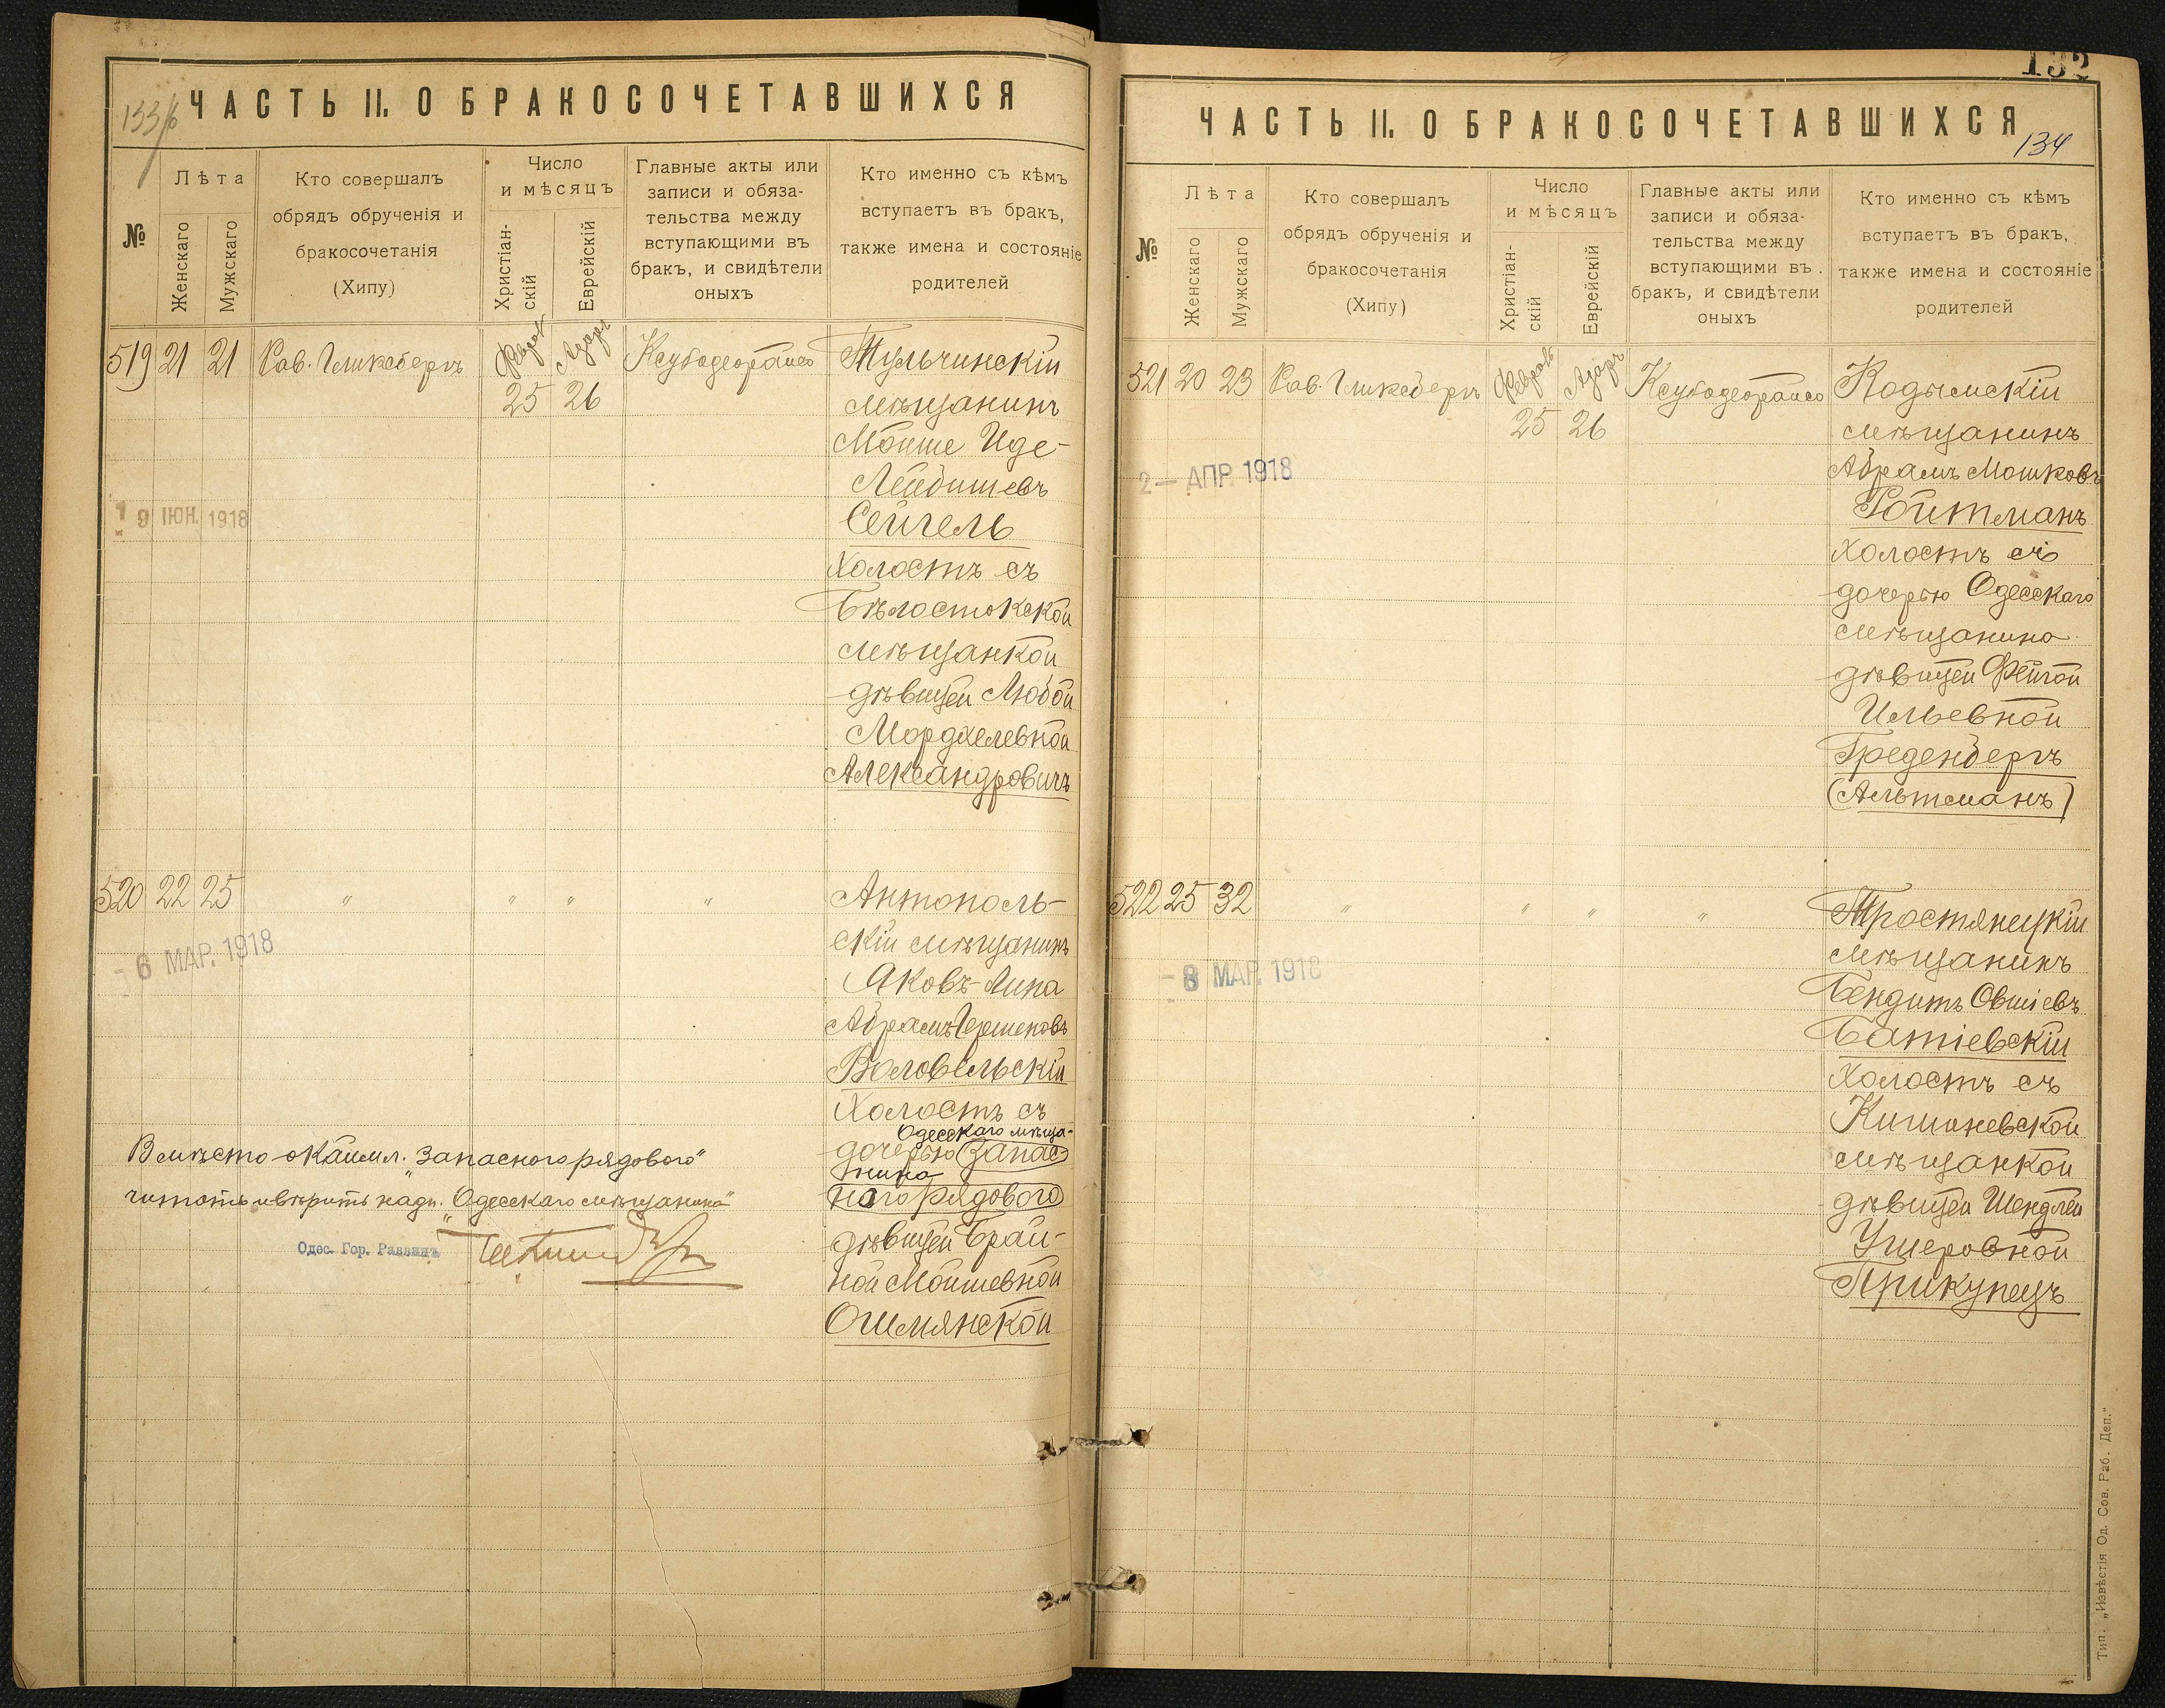 133/б
ЧАСТЬ II. О БРАКОСОЧЕТАВШИХСЯ
№
Лѣта
Женскаго
Мужскаго
Кто совершалъ
обрядъ обрученія и
бракосочетанія
(Хипу)
Число
и мѣсяцъ
Христіан-
скій
Еврейскій
Главные акты или
записи и обяза-
тельства между
вступающими въ
бракъ, и свидѣтели
оныхъ
Кто именно съ кѣмъ
вступаетъ въ бракъ,
также имена и состояніе
родителей
519 21 21 Рав. Гликсбергъ Феврал Адаръ
25 26
Тульчинскій
мѣщанинъ
Мойше Иде-
Лейбишевъ
Сейгель
Холостъ съ
Бѣлостокской
мѣщанкой
дѣвицей Любой
Мордхелевной
Александровичъ
19 ІЮН. 1918
520 22 25 " " " "
Антополь-
скій мѣщанинъ
Яковъ-Липа
Абрамъ Гершковъ
Воловельскій
Холостъ съ
Одесскаго мѣща-
дочерью (запас-
нина
ного рядового)
дѣвицей Брай-
ной Мойшевной
Ошмянской
- 6 МАР. 1918
Вмѣсто окаймл. "Запасного рядового"
читать и вѣрить надп. "Одесскаго мѣщанина"
Одес. Гор. Раввинъ
132
ЧАСТЬ II. О БРАКОСОЧЕТАВШИХСЯ
134
№
Лѣта
Женскаго
Мужскаго
Кто совершалъ
обрядъ обрученія и
бракосочетанія
(Хипу)
Число
и мѣсяцъ
Христіан-
скій
Еврейскій
Главные акты или
записи и обяза-
тельства между
вступающими въ
бракъ, и свидѣтели
оныхъ
Кто именно съ кѣмъ
вступаетъ въ бракъ,
также имена и состояніе
родителей
521 20 23 Рав. Гликсбергъ Феврал Адаръ
25 26
Кодымскій
мѣщанинъ
Абрамъ Мошковъ
Ройтманъ
Холостъ съ
дочерью Одесскаго
мѣщанина
дѣвицей Фейгой
Ильевной
Греденбергъ
(Альтманъ)
2 - АПР. 1918
522 25 32 " " " "
Тростянецкій
мѣщанинъ
Бендитъ Овшіевъ
Батіевскій
Холостъ съ
Кишиневской
мѣщанкой
дѣвицей Шендлей
Ушеровной
Прикупецъ
- 8 МАР. 1918
Тип. „Извѣстія Од. Сов. Раб. Деп."